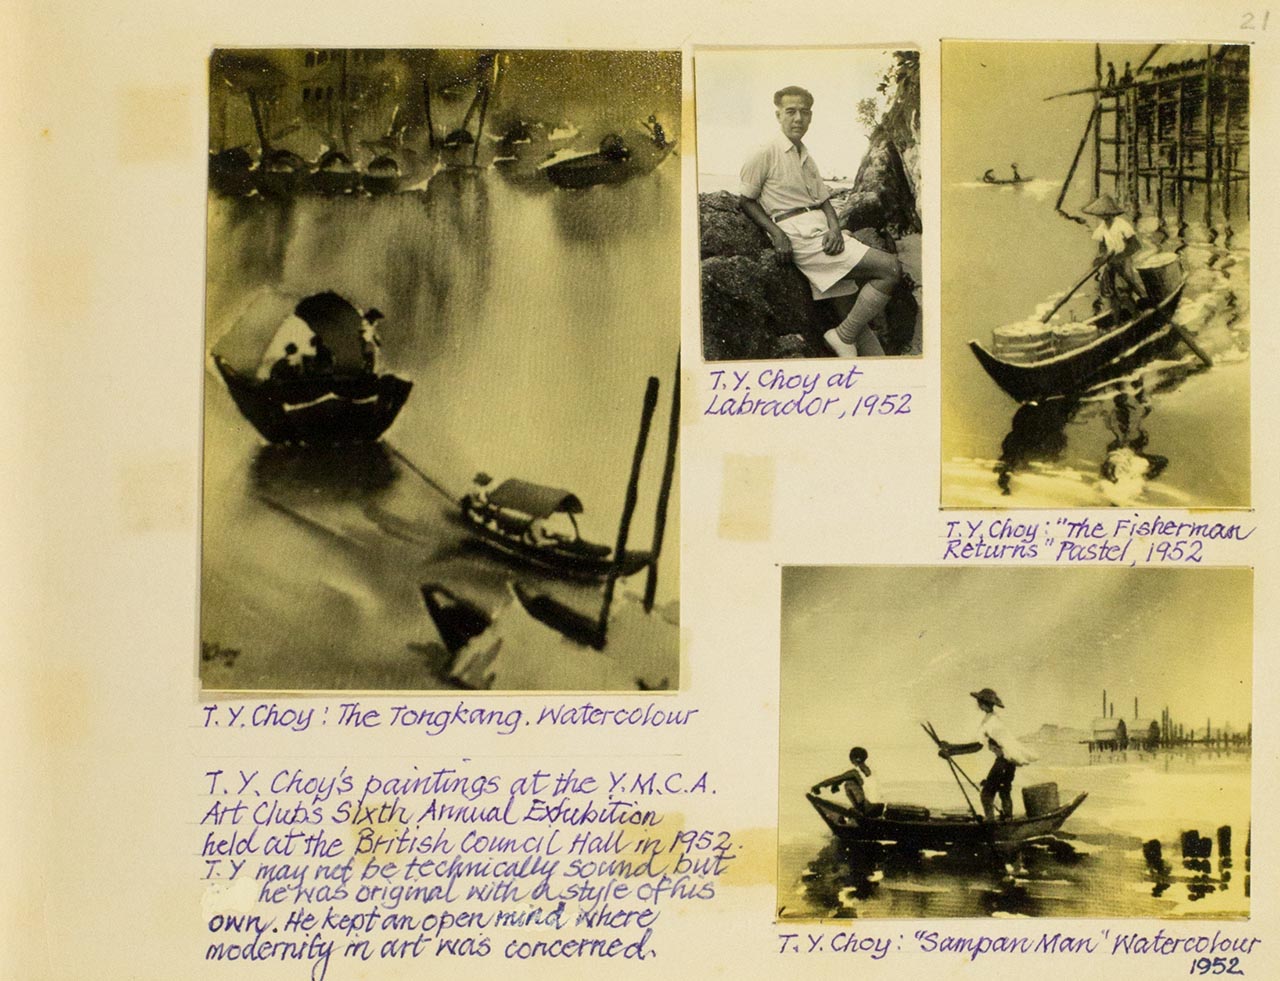 21
T.Y. Choy at
Labrador, 1952
T.Y. Choy: "The Fisherman
Returns" Pastel, 1952
T.Y. Choy: The Tongkang. Watercolour
T.Y. Choy's paintings at the Y.M.C.A.
Art Club's Sixth Annual Exhibition
held at the British Council Hall in 1952.
T.Y may not be technically sound, but
he was original with a style of his
own. He kept an open mind where
modernity in art was concerned.
T.Y. Choy: "Sampan Man" Watercolour
1952